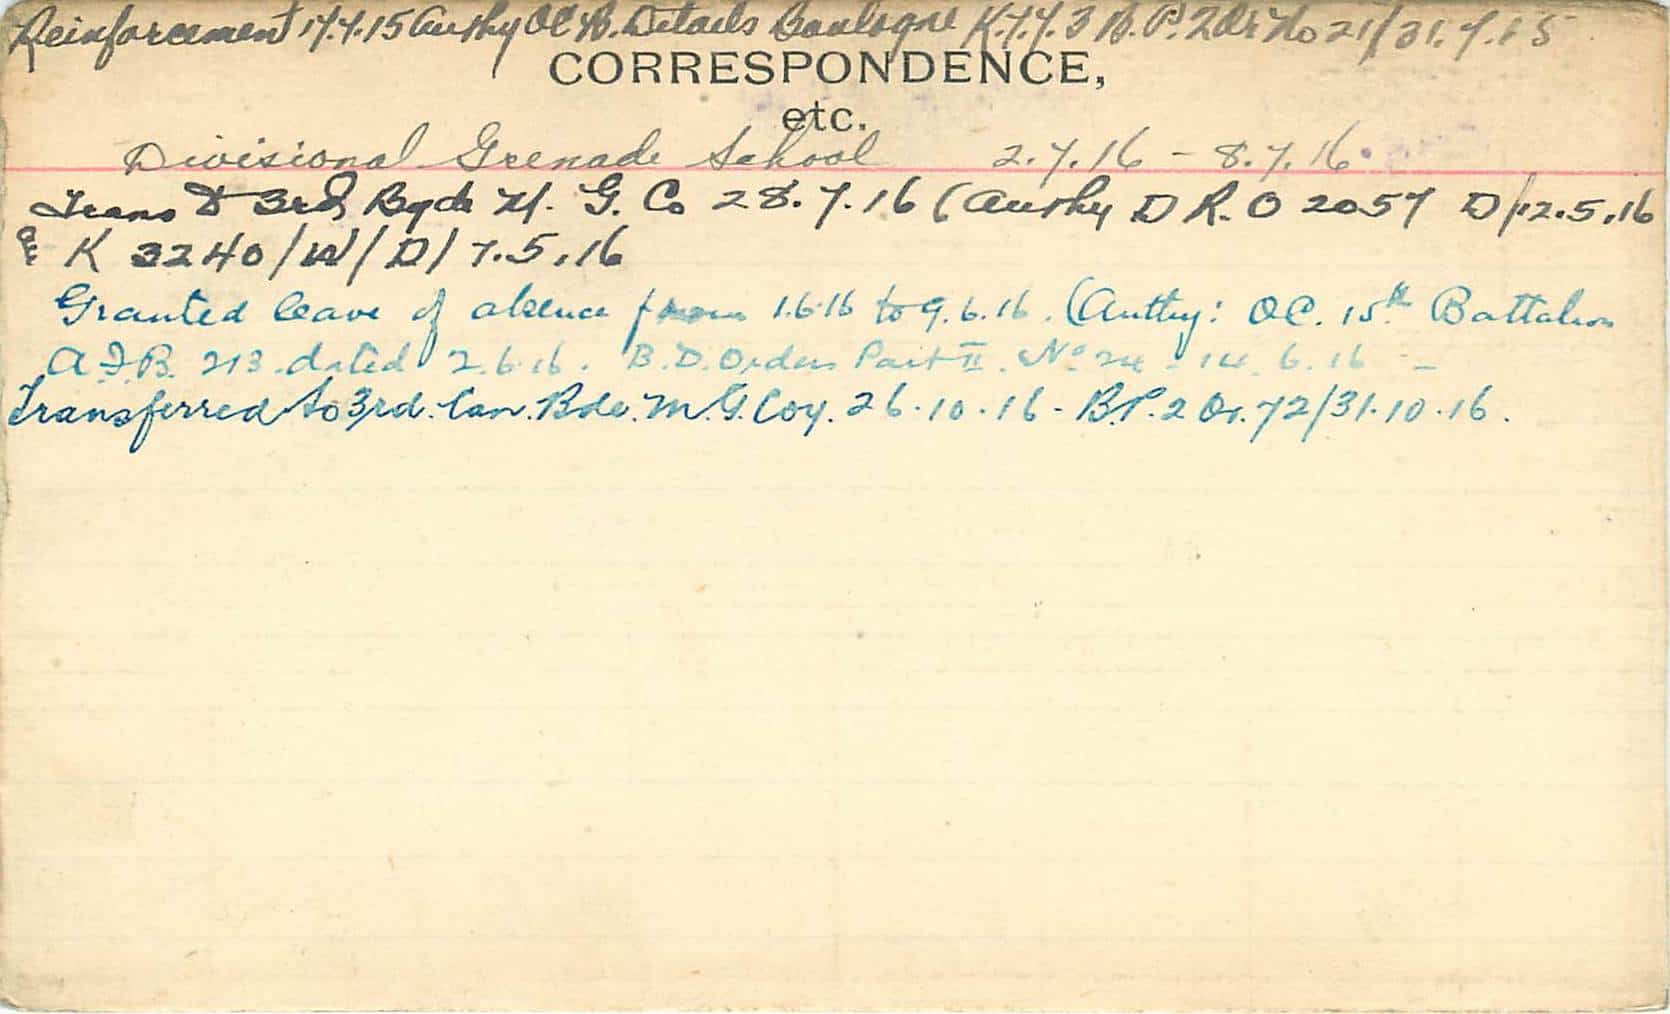 Reinforcement 17.7.15 Authy OC B. Details Boulogne K.7.7.3 B.P. 2 Or No 21/31.7.15
CORRESPONDENCE,
etc.
Divisional Grenade School 2.7.16 - 8.7.16.
Trans to 3rd Bgde M. G. Co 28.7.16 (Authy D R. O 2057 D/12.5.16
& K 3240/W/D/ 7.5.16
Granted leave of absence from 1.6.16 to 9.6.16. (Authy: OC. 15th Battalion
A.F.B. 213. dated 2.6.16. B.D. Orders Part II. No 24 - 14.6.16 -
Transferred to 3rd. Can. Bde. M.G. Coy. 26.10.16 - B.P. 2 Or. 72/31.10.16.